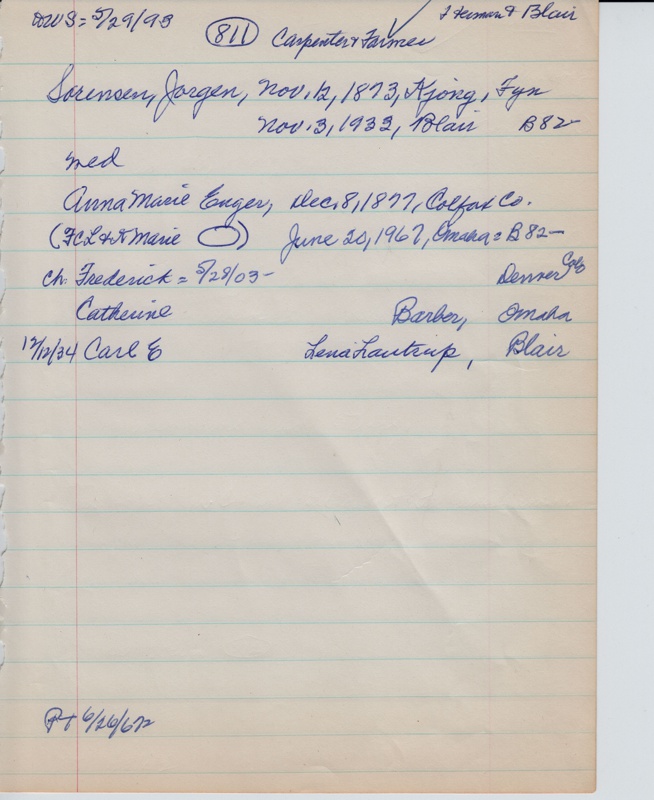 DWS = 5/29/93
811
Carpenter & Farmer
Herman & Blair
Sorensen, Jorgen, Nov. 12, 1873, Kjong, Fyn
Nov. 3, 1932, Blair B82
med
Anna Marie Enger, Dec. 8, 1877, Colfax Co.
(FCL & A Marie ) June 20, 1967, Omaha = B82
Ch. Frederick = 5/28/03 - Denver Colo
Catherine Barber, Omaha
12/12/34 Carl E Lena Lautrup, Blair
PT 6/26/67